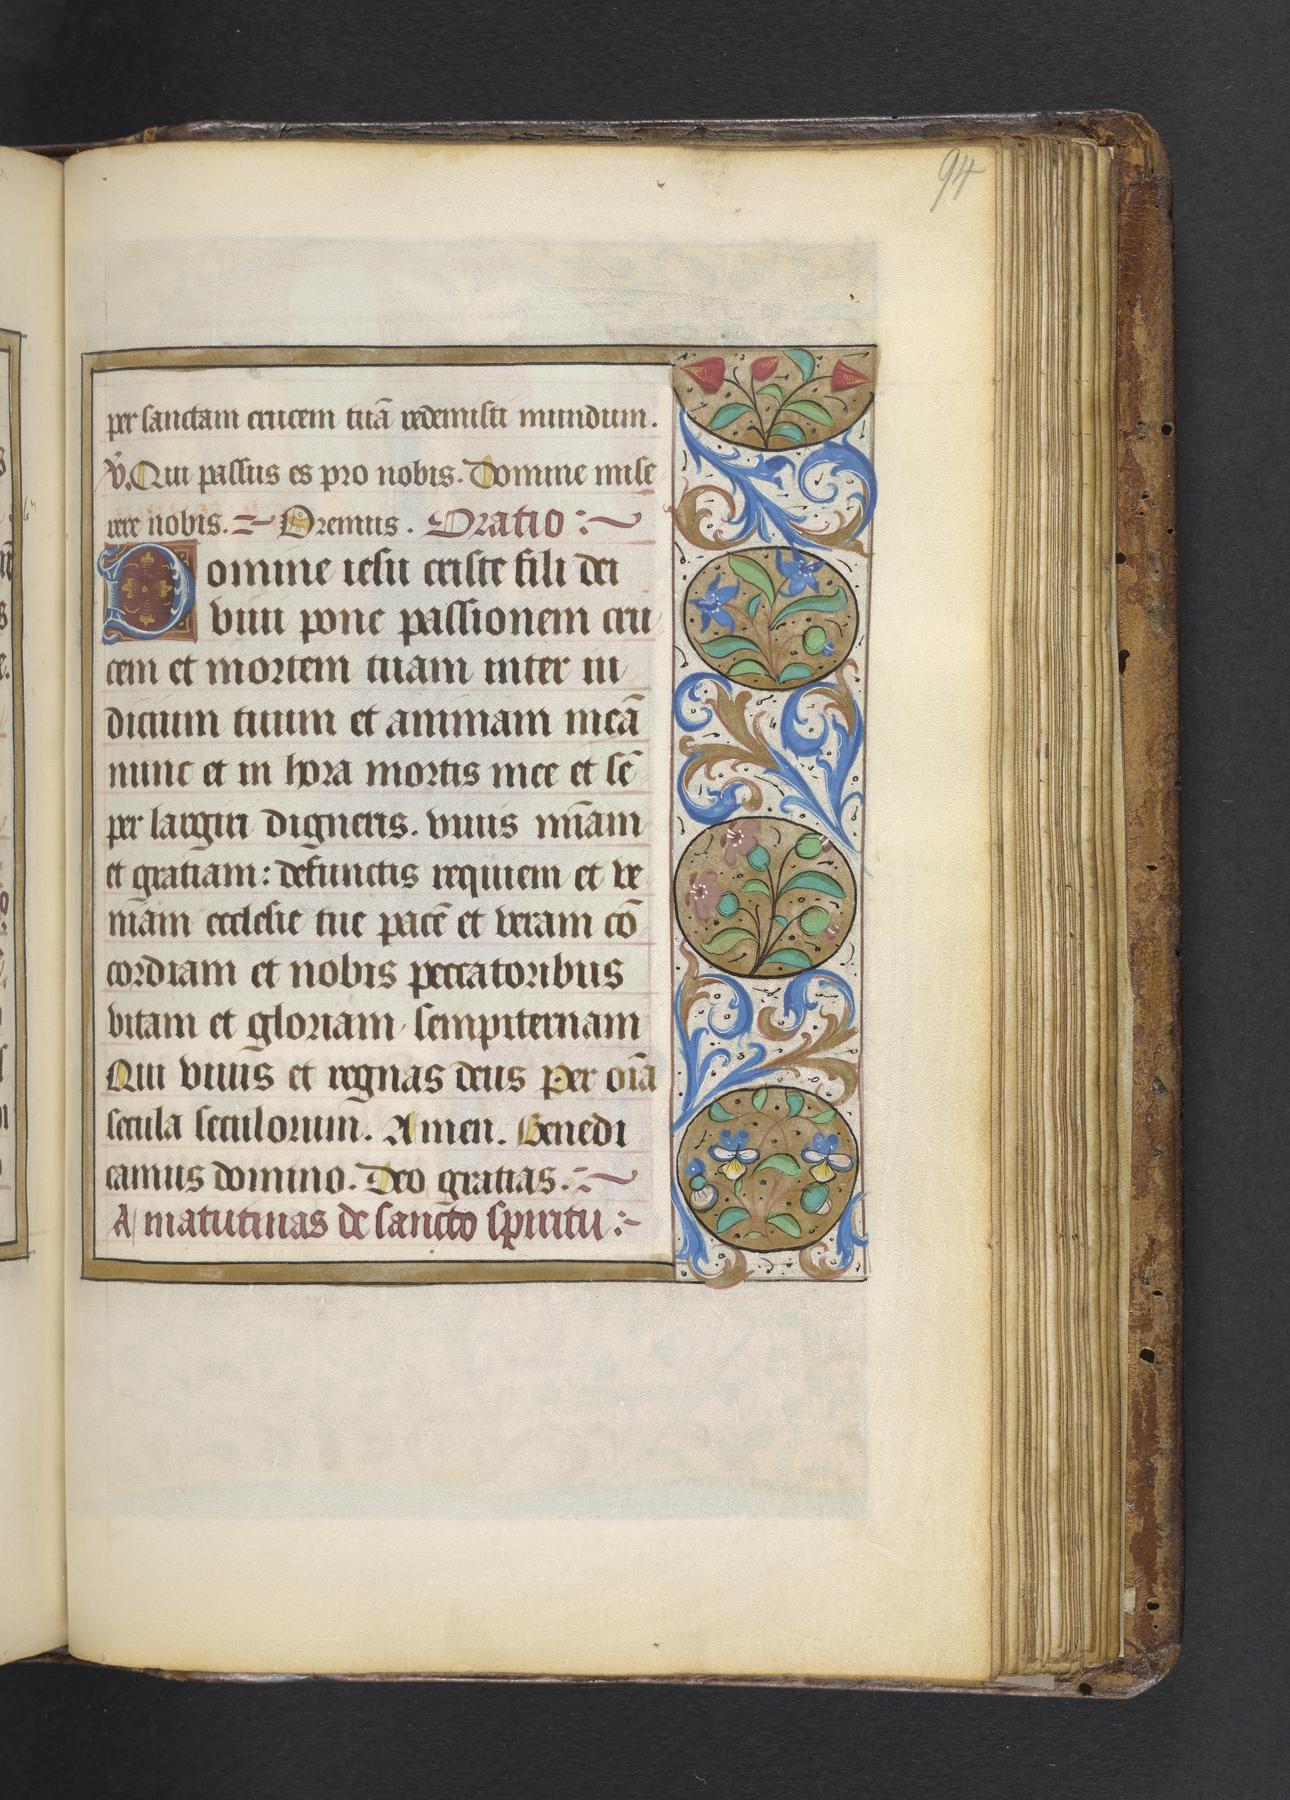 94
per sanctam crucem tuā redemisti mundum.
V̓. Qui passus es pro nobis. Domine mise
rere nobis. Oremus. Oratio
Domine iesu criste fili dei
viui pone passionem cru
cem et mortem tuam inter iu
dicium tuum et animam meā
nunc et in hora mortis mee et sē
per largiri digneris. viuis mīam
et gratiam: defunctis requiem et ve
niam ecclesie tue pacē et veram cō
cordiam et nobis peccatoribus
vitam et gloriam sempiternam
Qui viuis et regnas deus Per oīa
secula seculorum. Amen. Benedi
camus domino. Deo gratias.
A matutinas de sancto spiritu